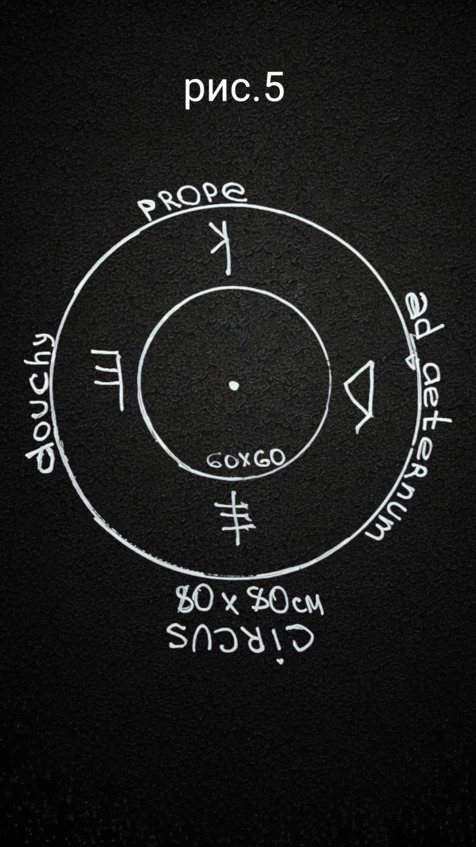 рис.5
PROPE
ad aeternum
douchy
60x60
80 x 80 см
CIRCUS